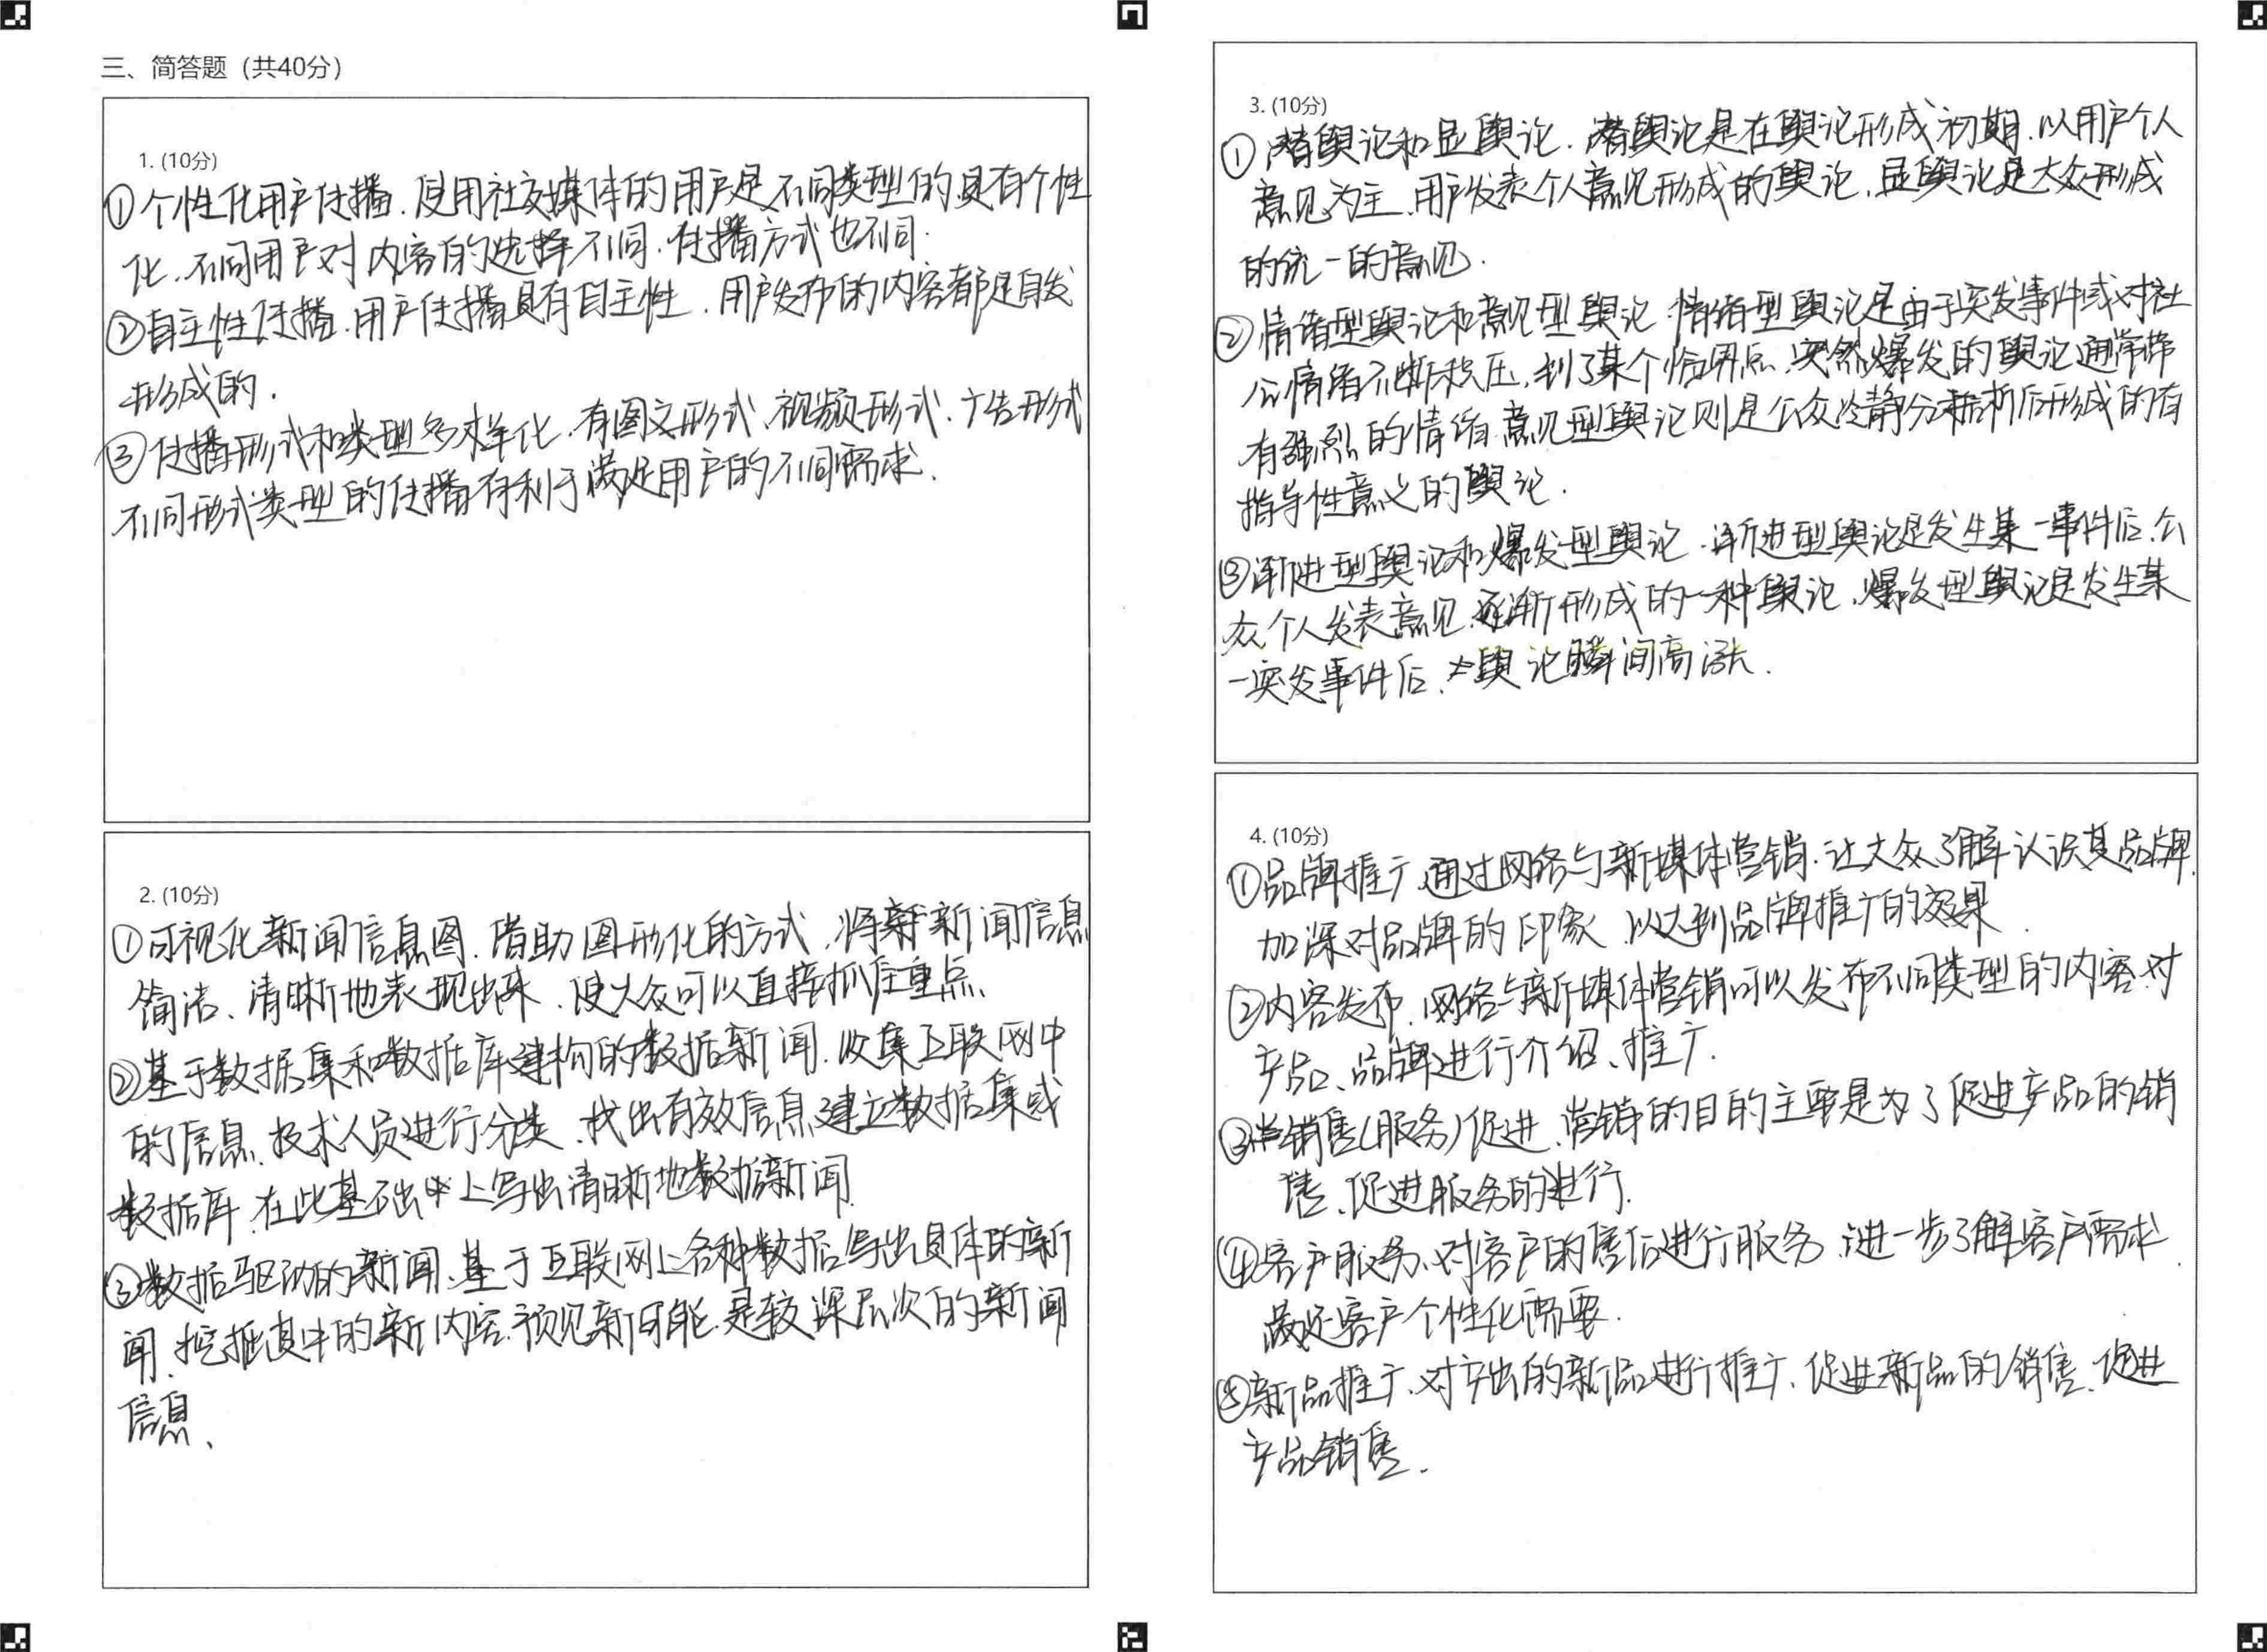 三、简答题（共40分）
1. (10分)
①个性化用户传播.使用社交媒体的用户是不同类型的,具有个性
化.不同用户对内容的选择不同.传播方式也不同.
②自主性传播.用户传播具有自主性.用户发布的内容都是自发
形成的.
③传播形式和类型多样化.有图文形式、视频形式、广告形式
不同形式类型的传播有利于满足用户的不同需求.
2. (10分)
①可视化新闻信息图.借助图形化的方式.将新闻信息
简洁、清晰地表现出来.使大众可以直接抓住重点.
②基于数据集和数据库建构的数据新闻.收集互联网中
的信息.技术人员进行分类.找出有效信息建立数据集或
数据库.在此基础上写出清晰地数据新闻.
③数据驱动的新闻.基于互联网上各种数据写出具体的新
闻.挖掘其中的新内容.预见新可能.是较深层次的新闻
信息、
3. (10分)
①潜舆论和显舆论.潜舆论是在舆论形成初期.以用户个人
意见为主.用户发表个人意见形成的舆论.显舆论是大众形成
的统一的意见.
②情绪型舆论和意见型舆论.情绪型舆论是由于突发事件或对社
会情绪不断积压,到了某个临界点.突然爆发的舆论通常带
有强烈的情绪.意见型舆论则是公众冷静分析后形成的有
指导性意义的舆论.
③渐进型舆论和爆发型舆论.渐进型舆论是发生某一事件后.公
众个人发表意见.逐渐形成的一种舆论.爆发型舆论是发生某
一突发事件后.舆论瞬间高涨.
4. (10分)
①品牌推广.通过网络与新媒体营销.让大众了解认识其品牌.
加深对品牌的印象.以达到品牌推广的效果.
②内容发布.网络与新媒体营销可以发布不同类型的内容.对
产品、品牌进行介绍、推广.
③销售(服务)促进.营销的目的主要是为了促进产品的销
售、促进服务的进行.
④客户服务.对客户的售后进行服务.进一步了解客户需求.
满足客户个性化需要.
⑤新品推广.对产出的新品进行推广.促进新品的销售.促进
产品销售.